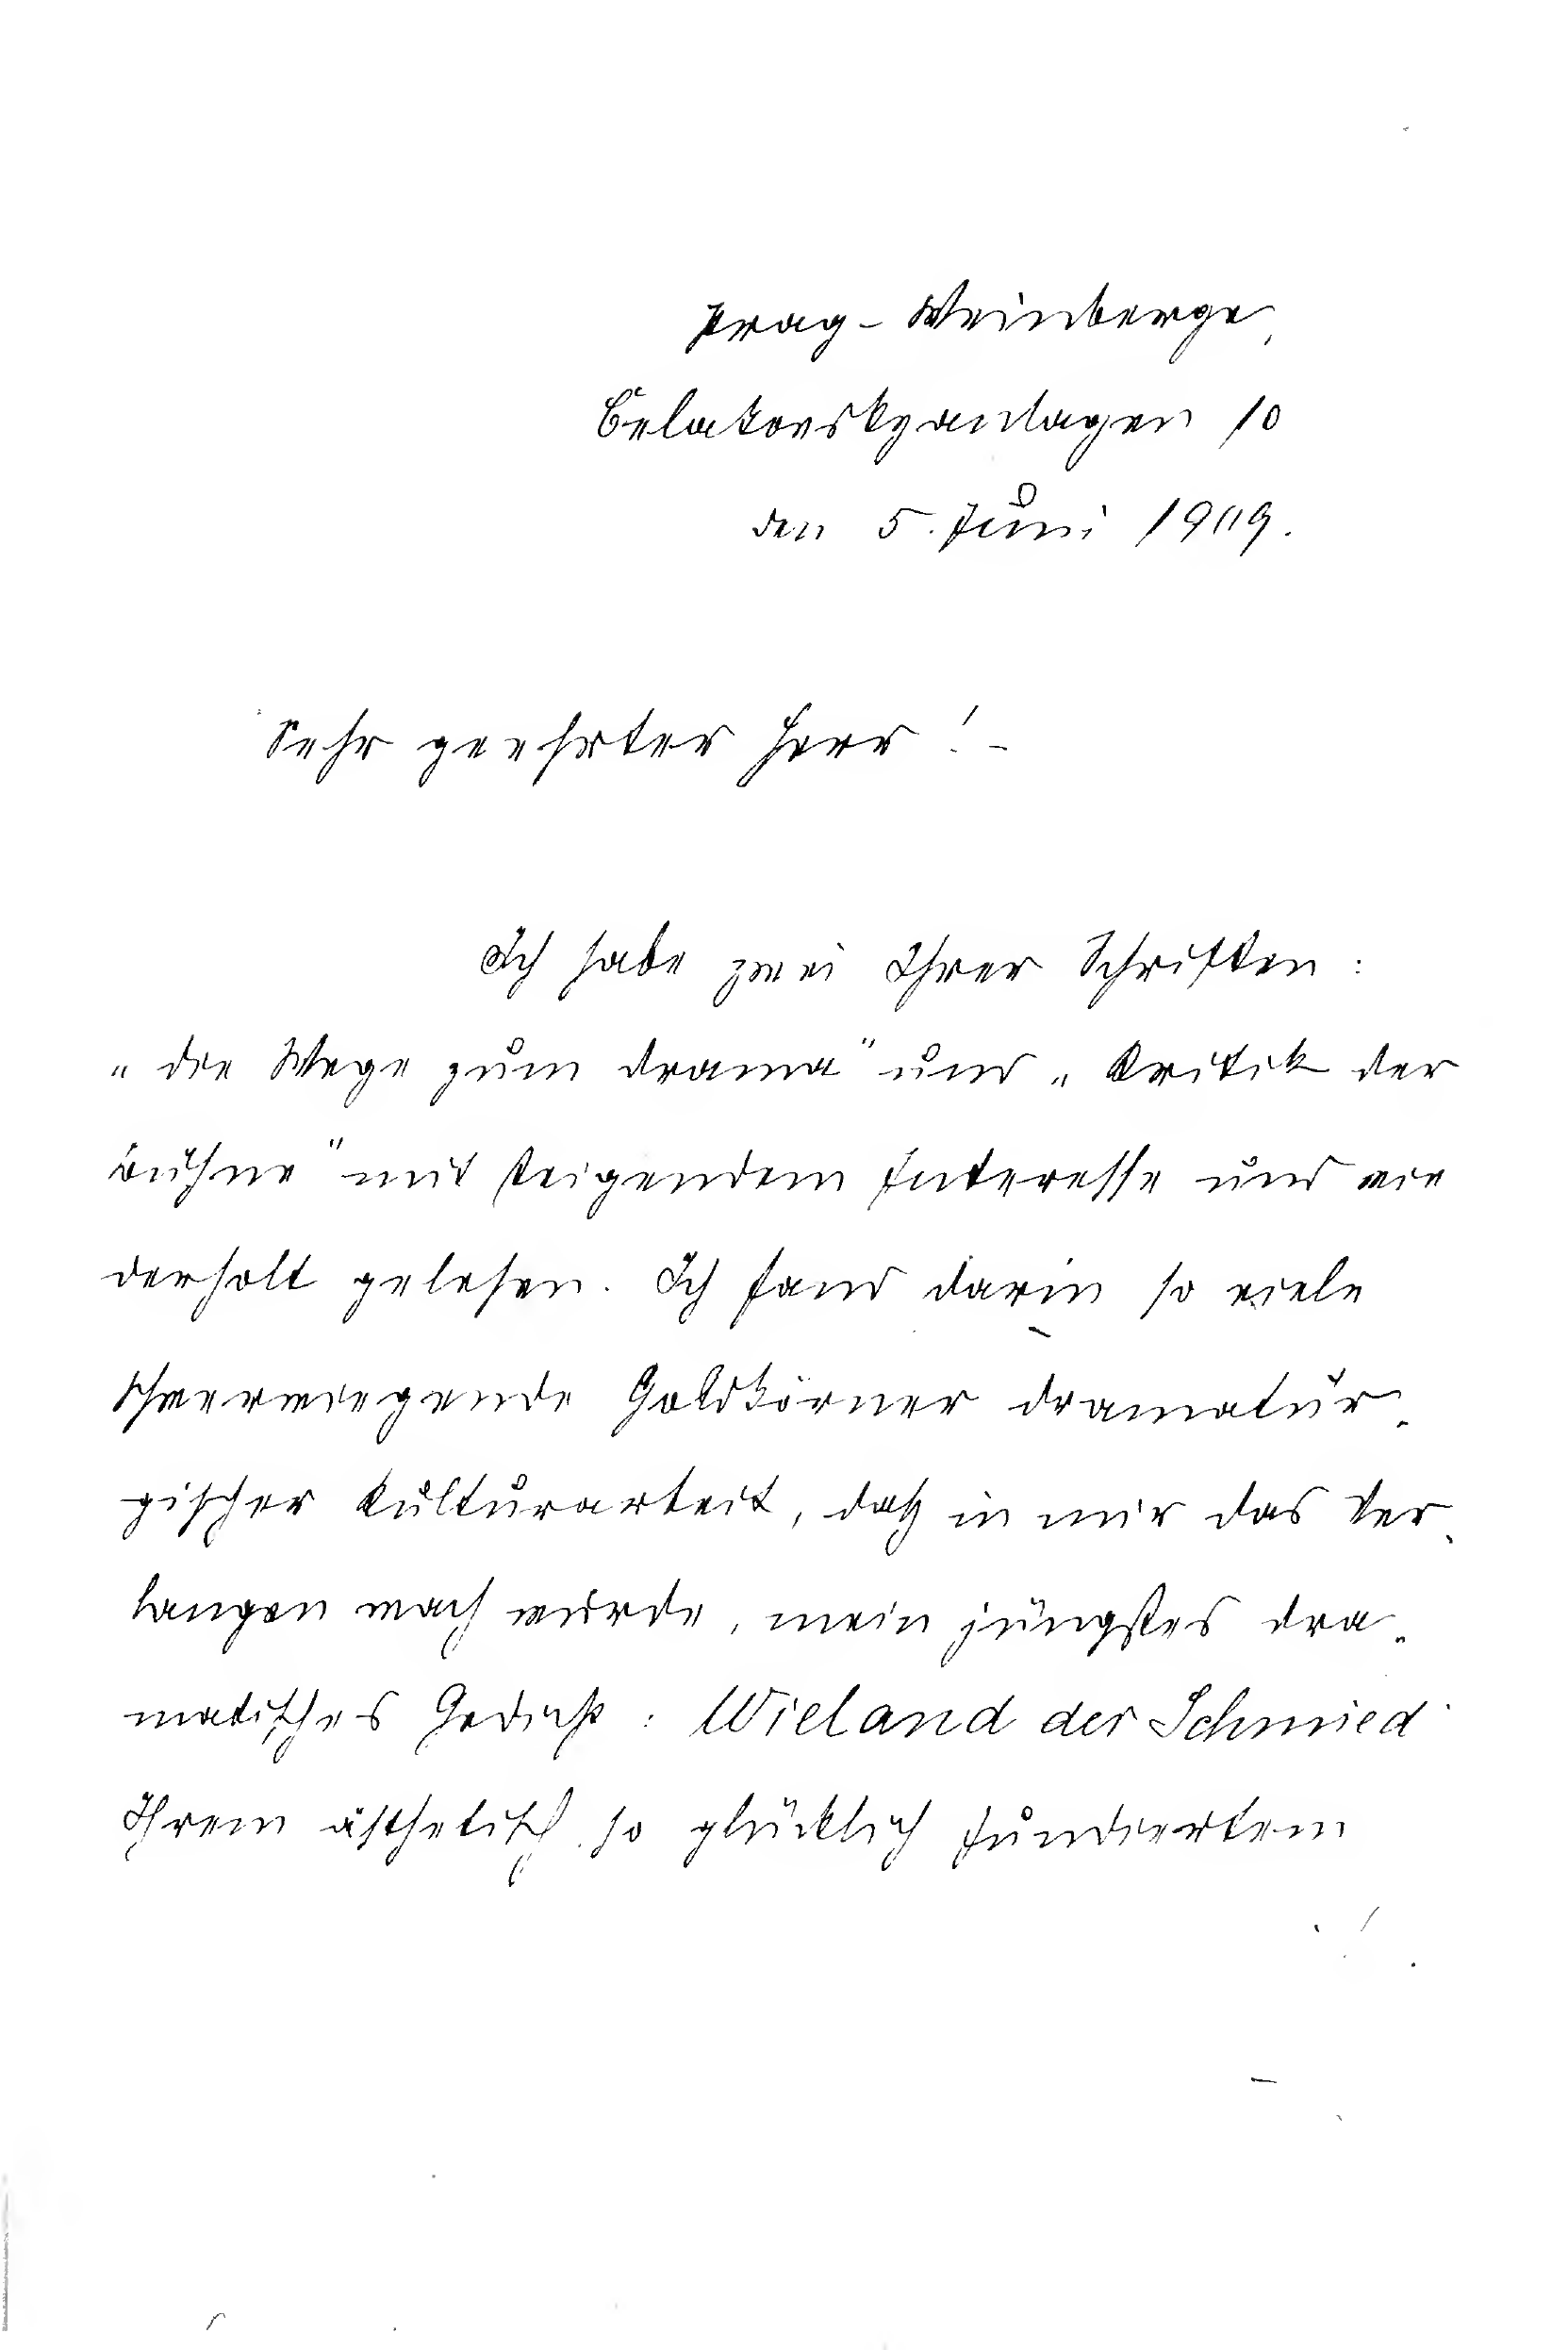 Prag - Weinberge,
Čelakovskyanlagen 10
den 5. Juni 1909.
Sehr geehrter Herr! -
Ich habe zwei Ihrer Schriften:
„die Wege zum Drama" und „Kritik der
Bühne" mit steigendem Interesse und wie
derholt gelesen. Ich fand darin so viele
schwerwiegende Goldkörner dramatur-
gischer Kulturarbeit, daß in mir das Ver-
langen wach wurde, mein jüngstes dra-
matisches Gedicht: Wieland der Schmied
Ihrem ästhetisch so glücklich fundiertem